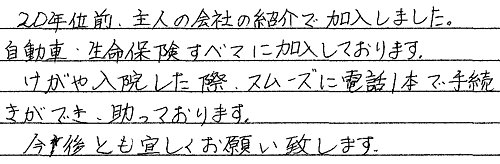 20年位前、主人の会社の紹介で加入しました。
自動車・生命保険すべてに加入しております。
けがや入院した際、スムーズに電話1本で手続
きができ、助っております。
今後とも宜しくお願い致します。